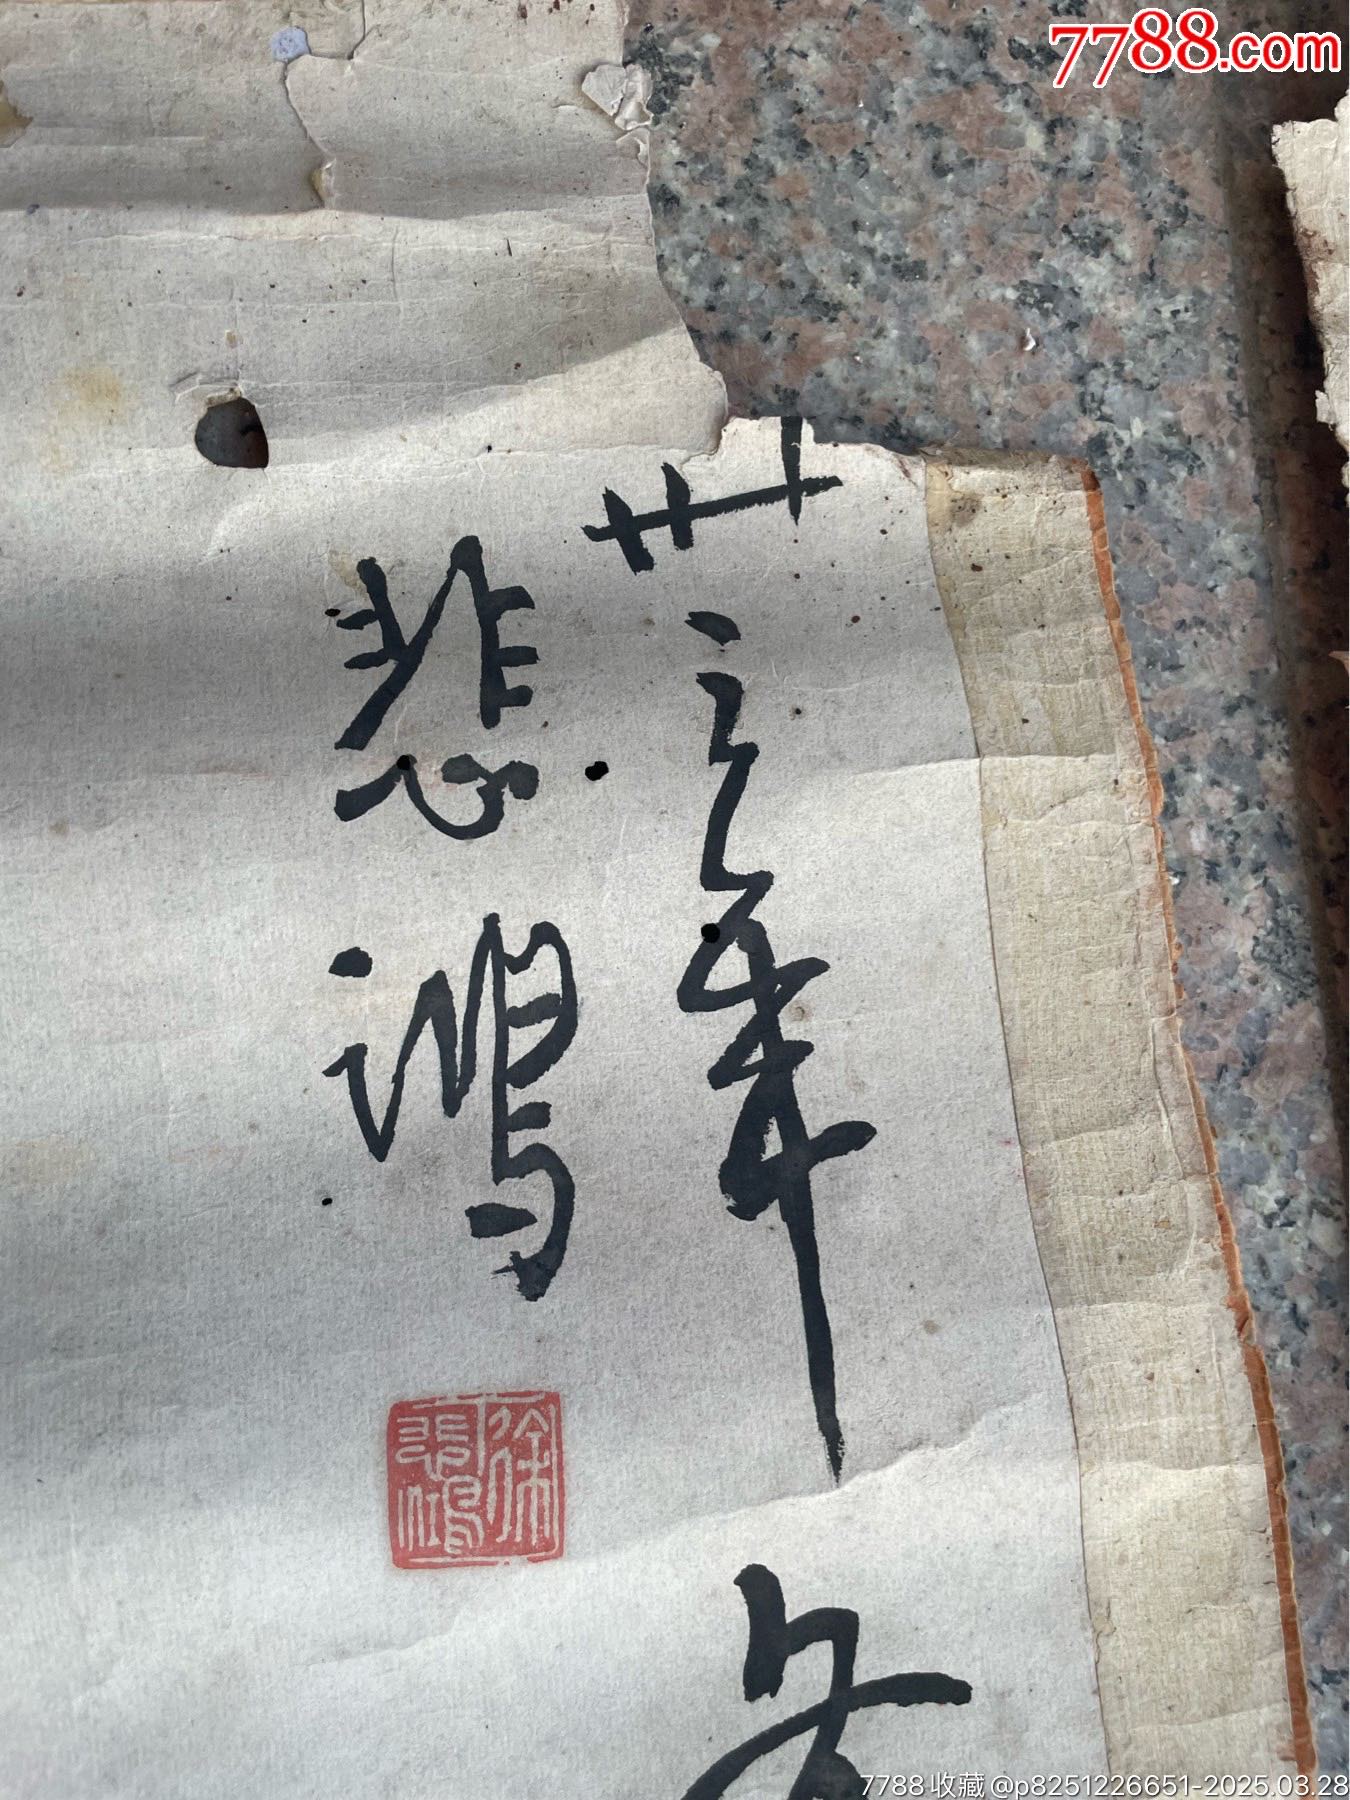 7788.com
年
悲鴻
徐悲鴻
7788收藏@p8251226651-2025.03.28